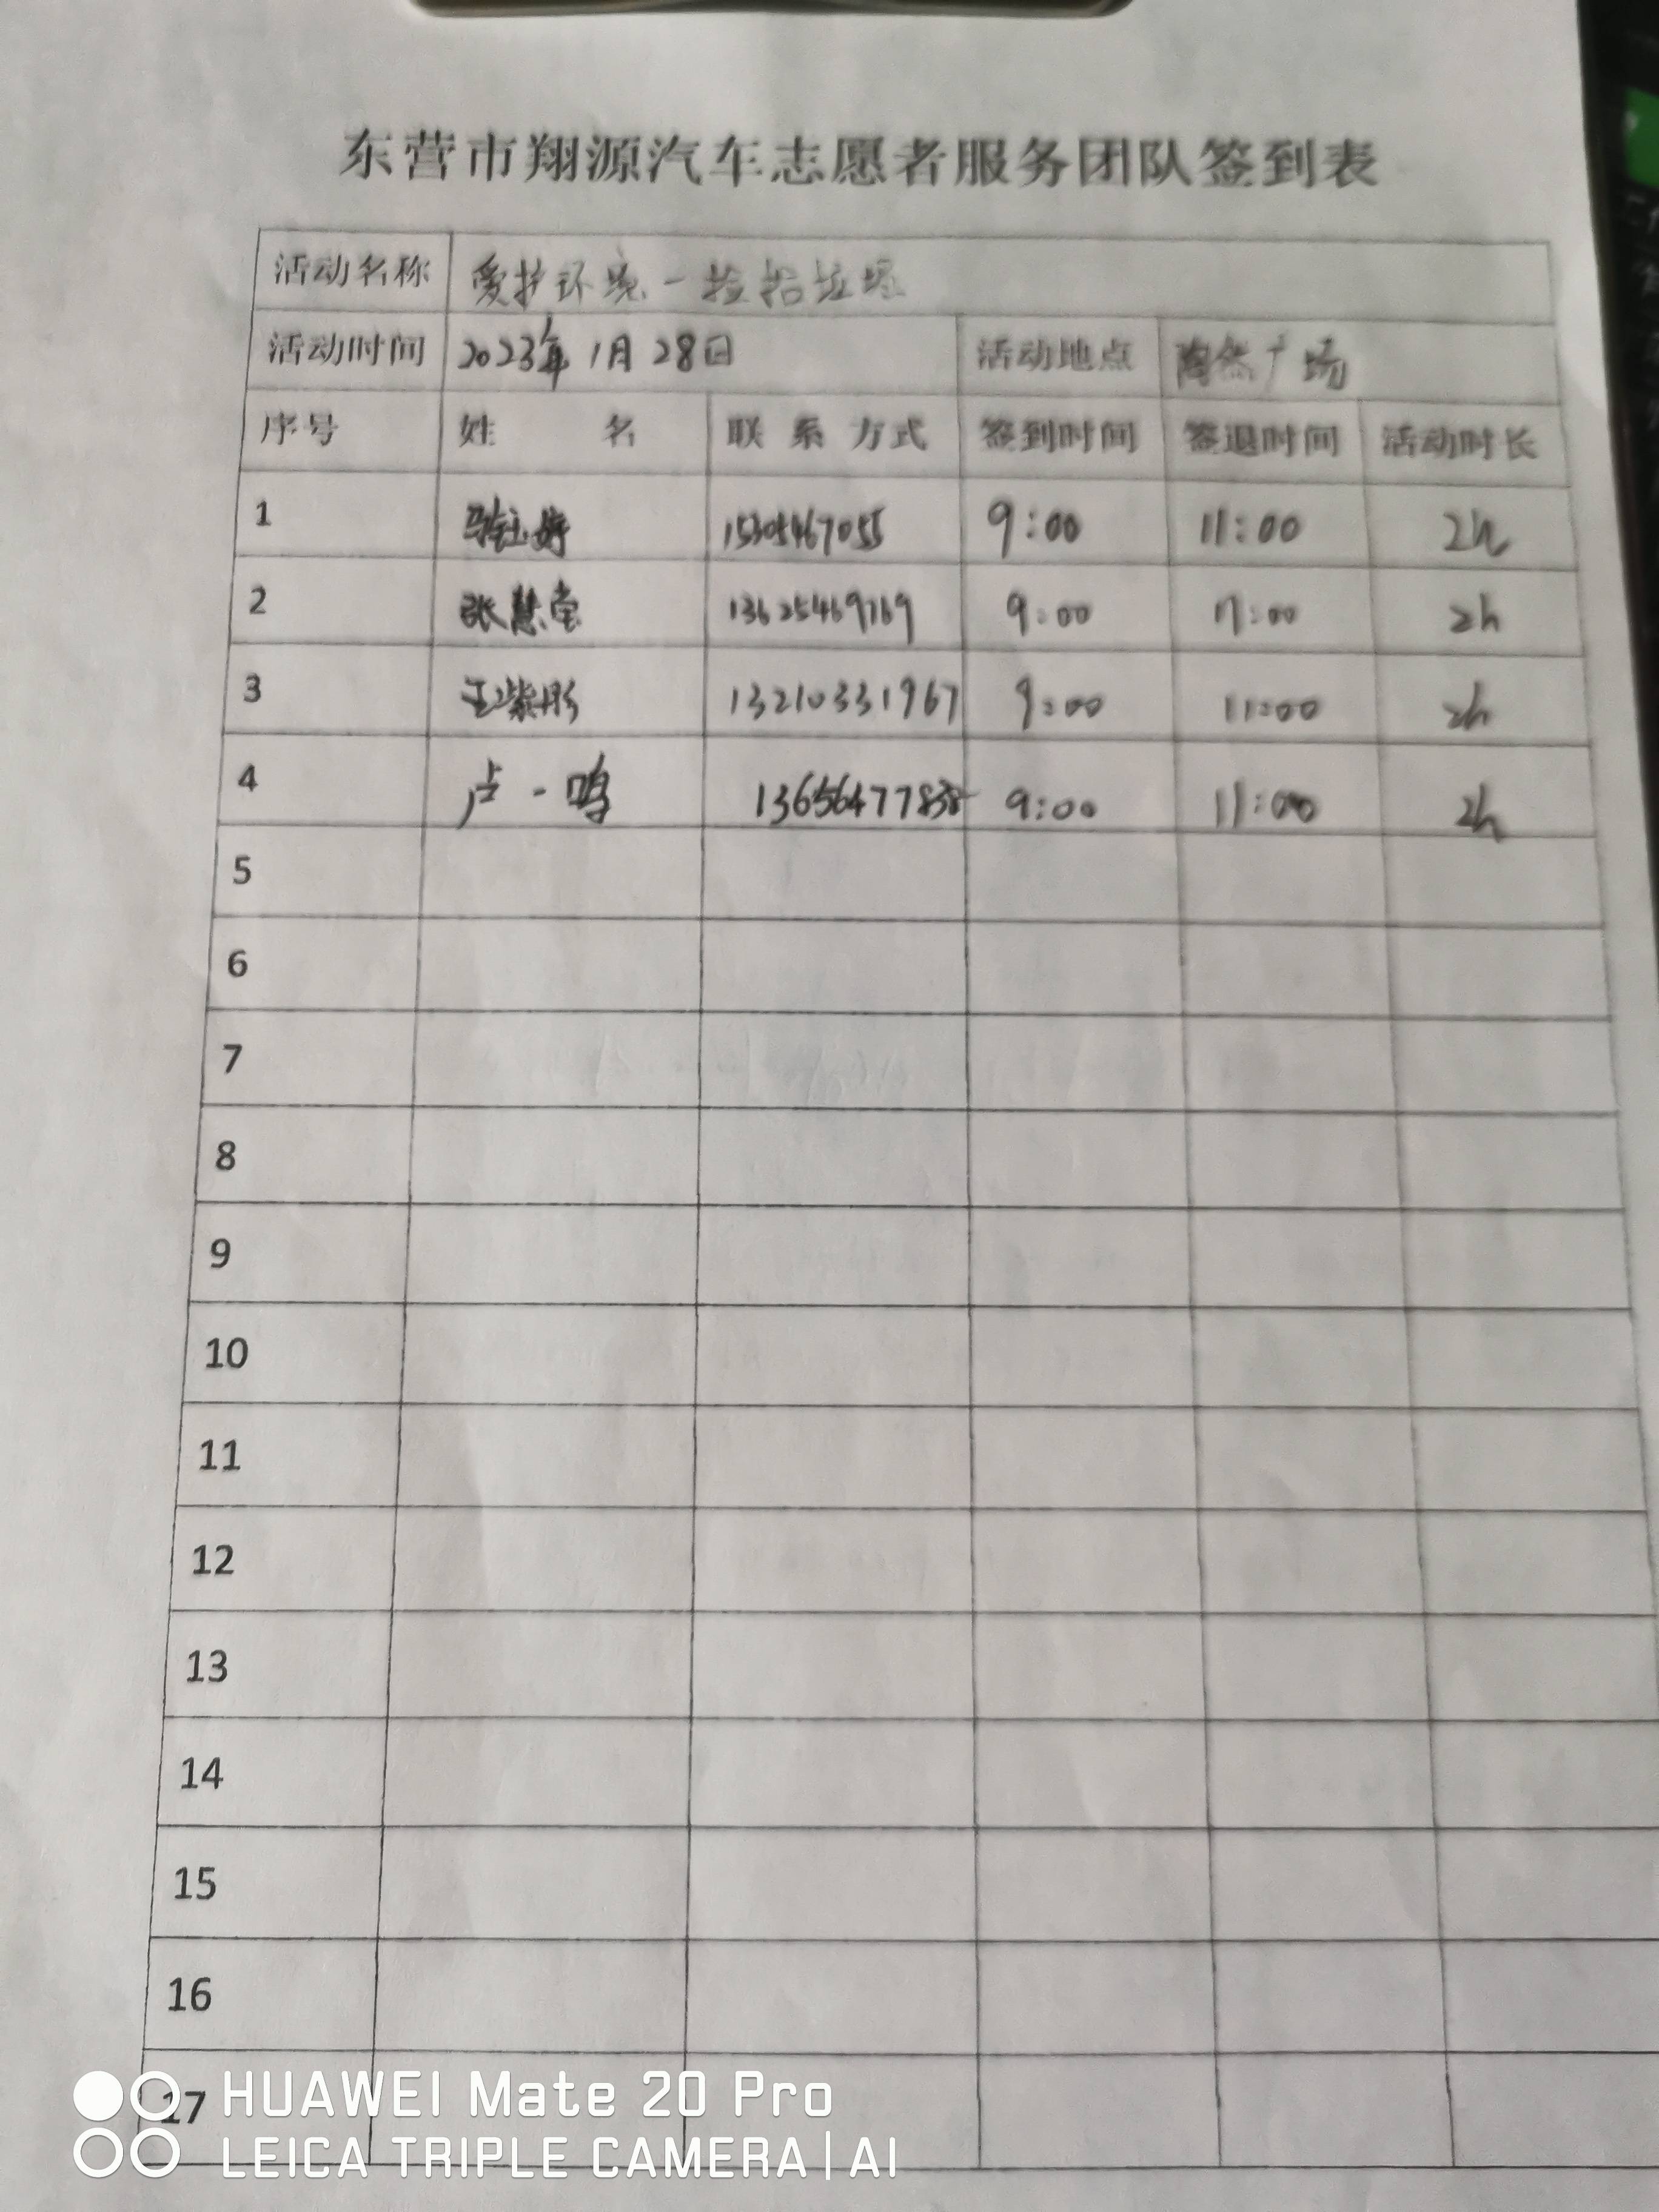 东营市翔源汽车志愿者服务团队签到表
活动名称 爱护环境-捡拾垃圾
活动时间 2023年1月28日 活动地点 陶然广场
序号 姓 名 联系方式 签到时间 签退时间 活动时长
1 15305467055 9:00 11:00 2h
2 张慧莹 13625469769 9:00 11:00 2h
3 王紫彤 13210331967 9:00 11:00 2h
4 卢一鸣 9:00 11:00 2h
5
6
7
8
9
10
11
12
13
14
15
16
17
HUAWEI Mate 20 Pro
LEICA TRIPLE CAMERA | AI